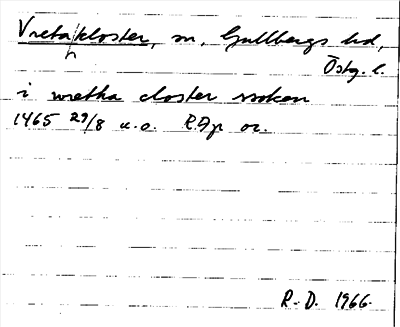 Vreta kloster, sn, Gullbergs hd,
Östg. l.
i wretha closter soken
1465 29/8 u.o. RAp or.
R. D. 1966.